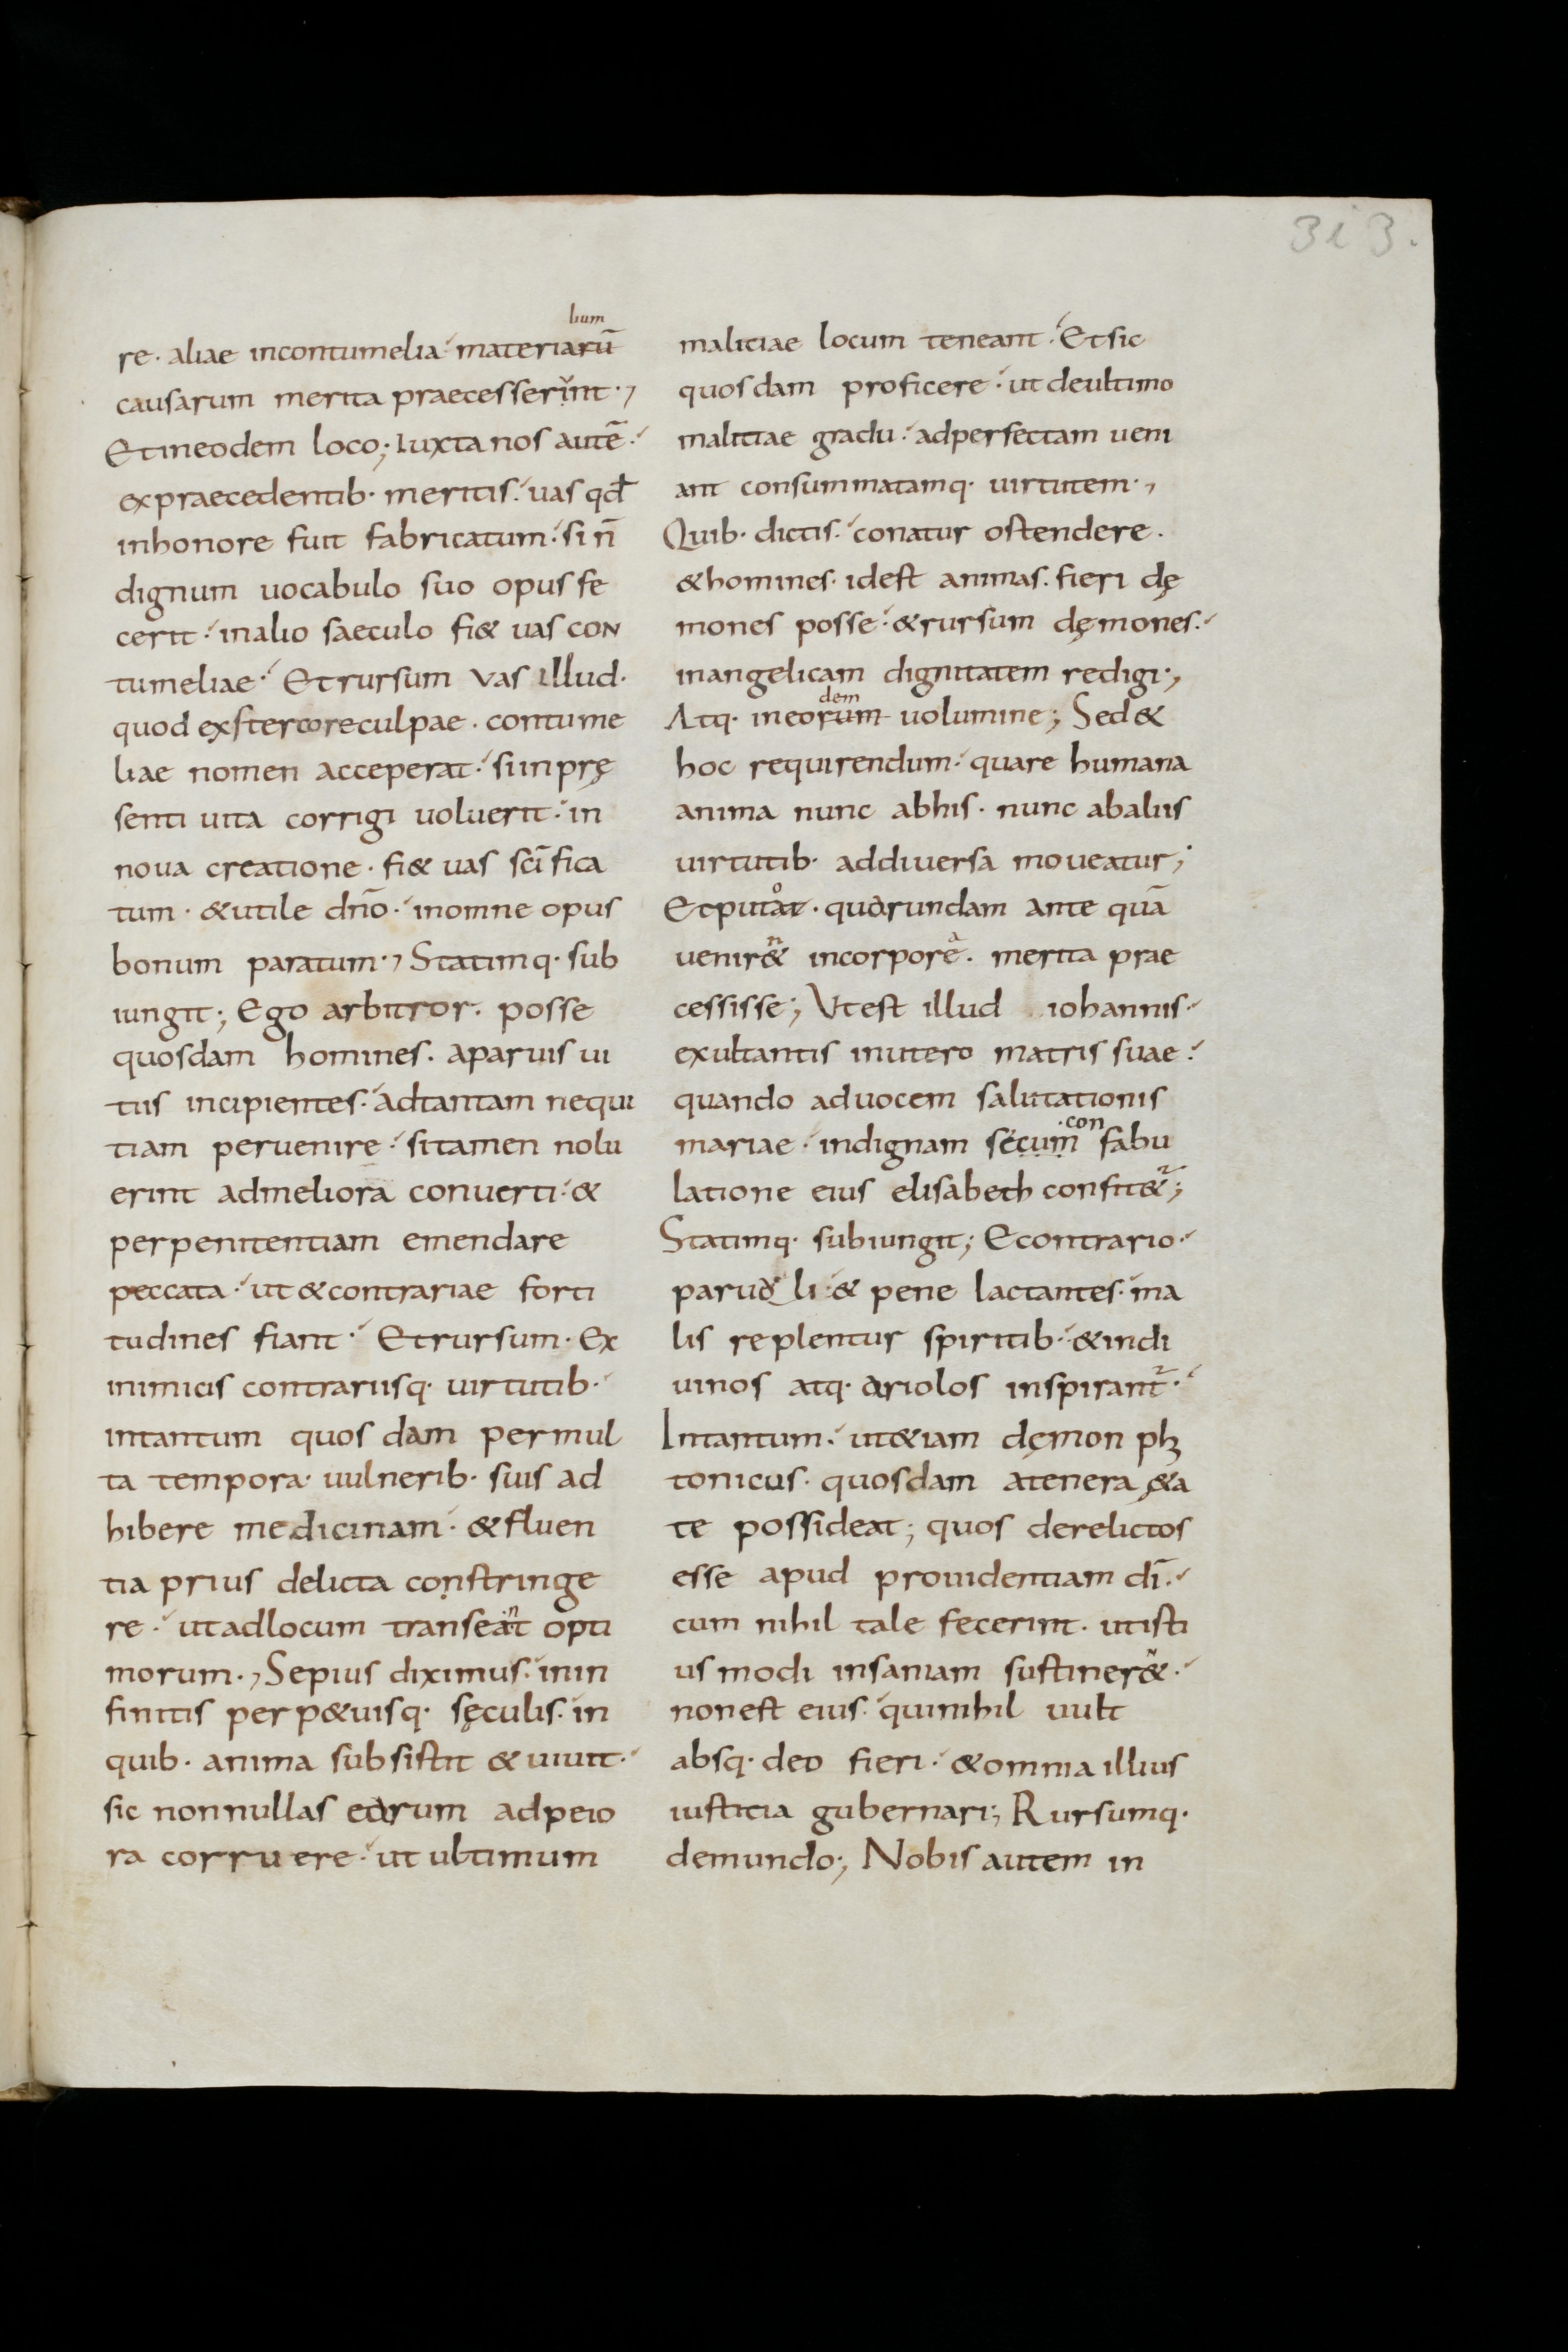 313.
lium
re· aliae incontumelia materiarū
causarum merita praecesserint·,
Etineodem loco; Iuxta nos autē·
expraecedentib· meritis· uas qđ
inhonore fuit fabricatum· si n̄
dignum uocabulo suo opus fe
cerit· inalio saeculo fi& uas con
tumeliae· Etrursum vas illud·
quod exstercoreculpae· contume
liae nomen acceperat· siinprę
senti uita corrigi uoluerit· in
noua creatione· fi& uas sc̄ifica
tum· &utile dn̄o· inomne opus
bonum paratum·, Statimq· sub
iungit; Ego arbitror· posse
quosdam homines· aparuis ui
tiis incipientes· adtantam nequi
tiam peruenire· sitamen nolu
erint admeliora conuerti· &
perpenitentiam emendare
peccata· ut &contrariae forti
tudines fiant· Etrursum· Ex
inimicis contrariisq· uirtutib·
intantum quosdam permul
ta tempora· uulnerib· suis ad
hibere medicinam· &fluen
tia prius delicta constringe
re· utadlocum transeant opti
morum·, Sepius diximus· inin
finitis perp&uisq· sęculis· in
quib· anima subsistit &uiuit·
sic nonnullas earum adpeio
ra corruere· ut ultimum
malitiae locum teneant· Etsic
quosdam proficere· ut deultimo
malitiae gradu· adperfectam ueni
ant consummatamq· uirtutem·,
Quib· dictis· conatur ostendere·
&homines· idest animas· fieri dę
mones posse· &rursum dęmones·
inangelicam dignitatem redigi·,
dem
Atq· ineorum uolumine; Sed&
hoc requirendum· quare humana
anima nunc abhis· nunc abaliis
uirtutib· addiuersa moueatur;
Etputat· quarundam ante quā
uenir& incorpore· merita prae
cessisse; Vtest illud iohannis·
exultantis inutero matris suae·
quando aduocem salutationis
con
mariae· indignam secum fabu
latione eius elisabeth confit&;
Statimq· subiungit; Econtrario·
paruuli & pene lactantes· ma
lis replentur spiritib· &indi
uinos atq· ariolos inspirant·
Intantum· ut&iam dęmon phi
tonicus· quosdam atenera &a
te possideat; quos derelictos
esse apud prouidentiam dī·
cum nihil tale fecerint· utisti
usmodi insaniam sustiner&·
nonest eius· quinihil uult
absq· deo fieri· &omnia illius
iusticia gubernari; Rursumq·
demundo; Nobis autem in